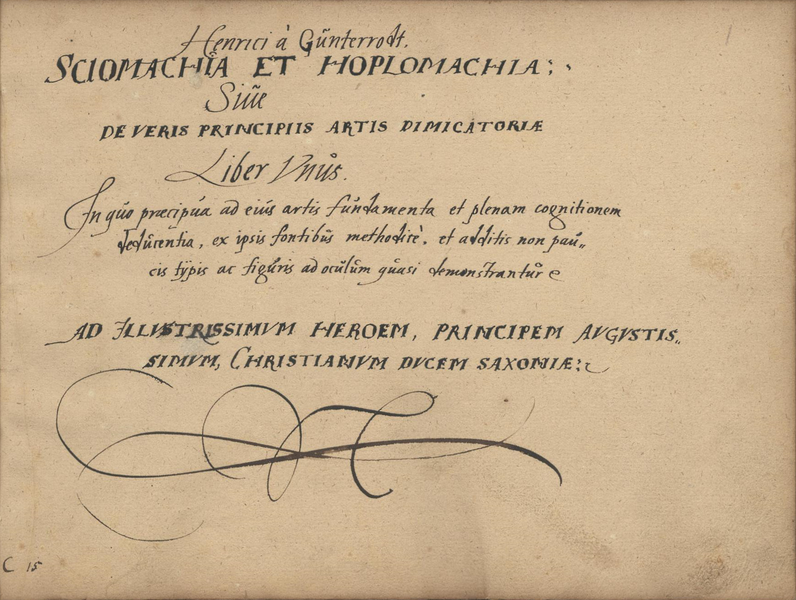 Henrici à Günterrodt.
SCIOMACHIA ET HOPLOMACHIA:
Siue
DE VERIS PRINCIPIIS ARTIS DIMICATORIÆ
Liber Vnus.
In quo præcipua ad eius artis fundamenta et plenam cognitionem
deducentia, ex ipsis fontibus methodicè, et additis non pau„
cis typis ac figuris ad oculum quasi demonstrantur
AD ILLVSTRISSIMVM HEROEM, PRINCIPEM AVGVSTIS„
SIMVM, CHRISTIANVM DVCEM SAXONIÆ:
C 15